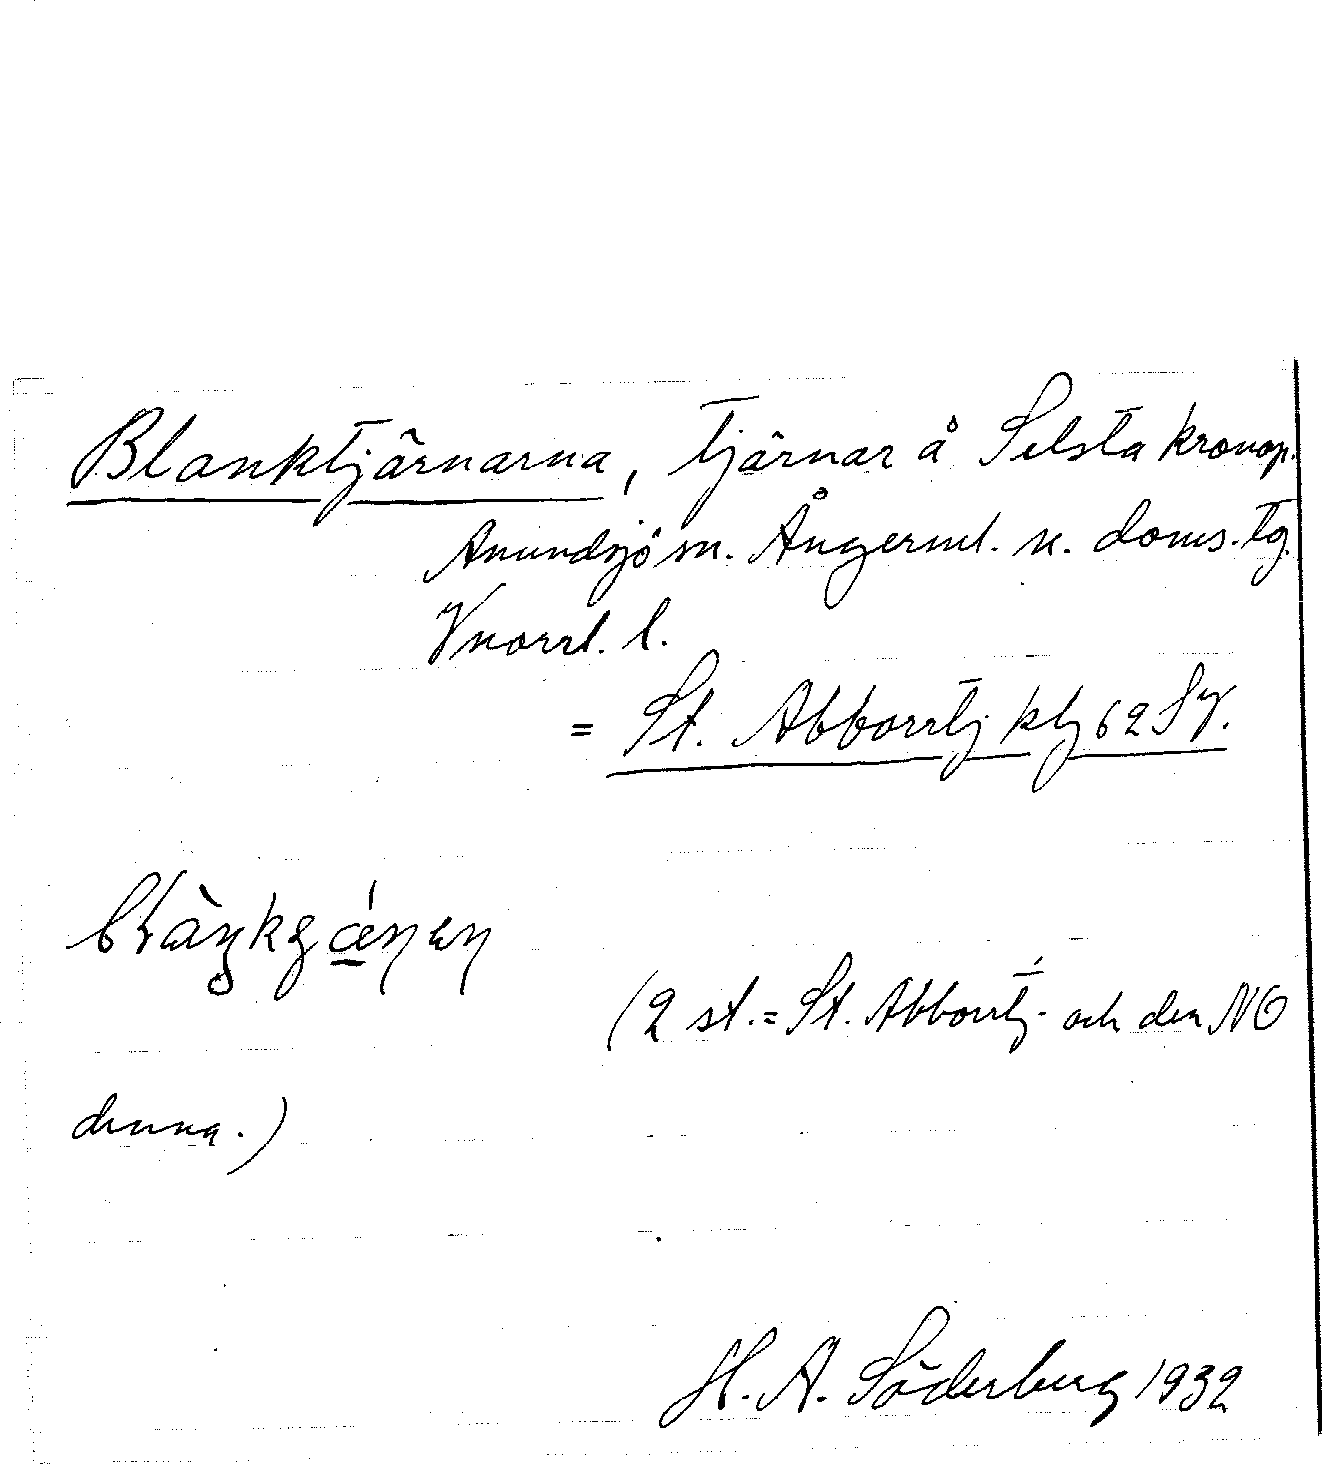 Blanktjärnarna, tjärnar å Selsta kronop.
Anundsjö sn. Ångerml. n. doms. tg.
Vnorrl. l.
= St. Abborrtj kbj 62 Sy.
(2 st. = St. Abborrtj. och den NO
denna.)
H. A. Söderberg 1932